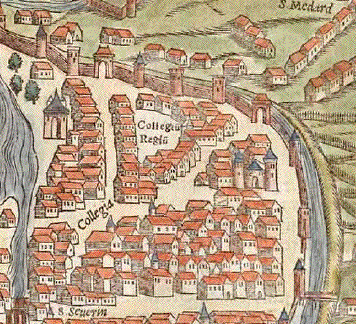 S. Medard
Collegiũ
Regiũ
Collegia
S. Seuerin